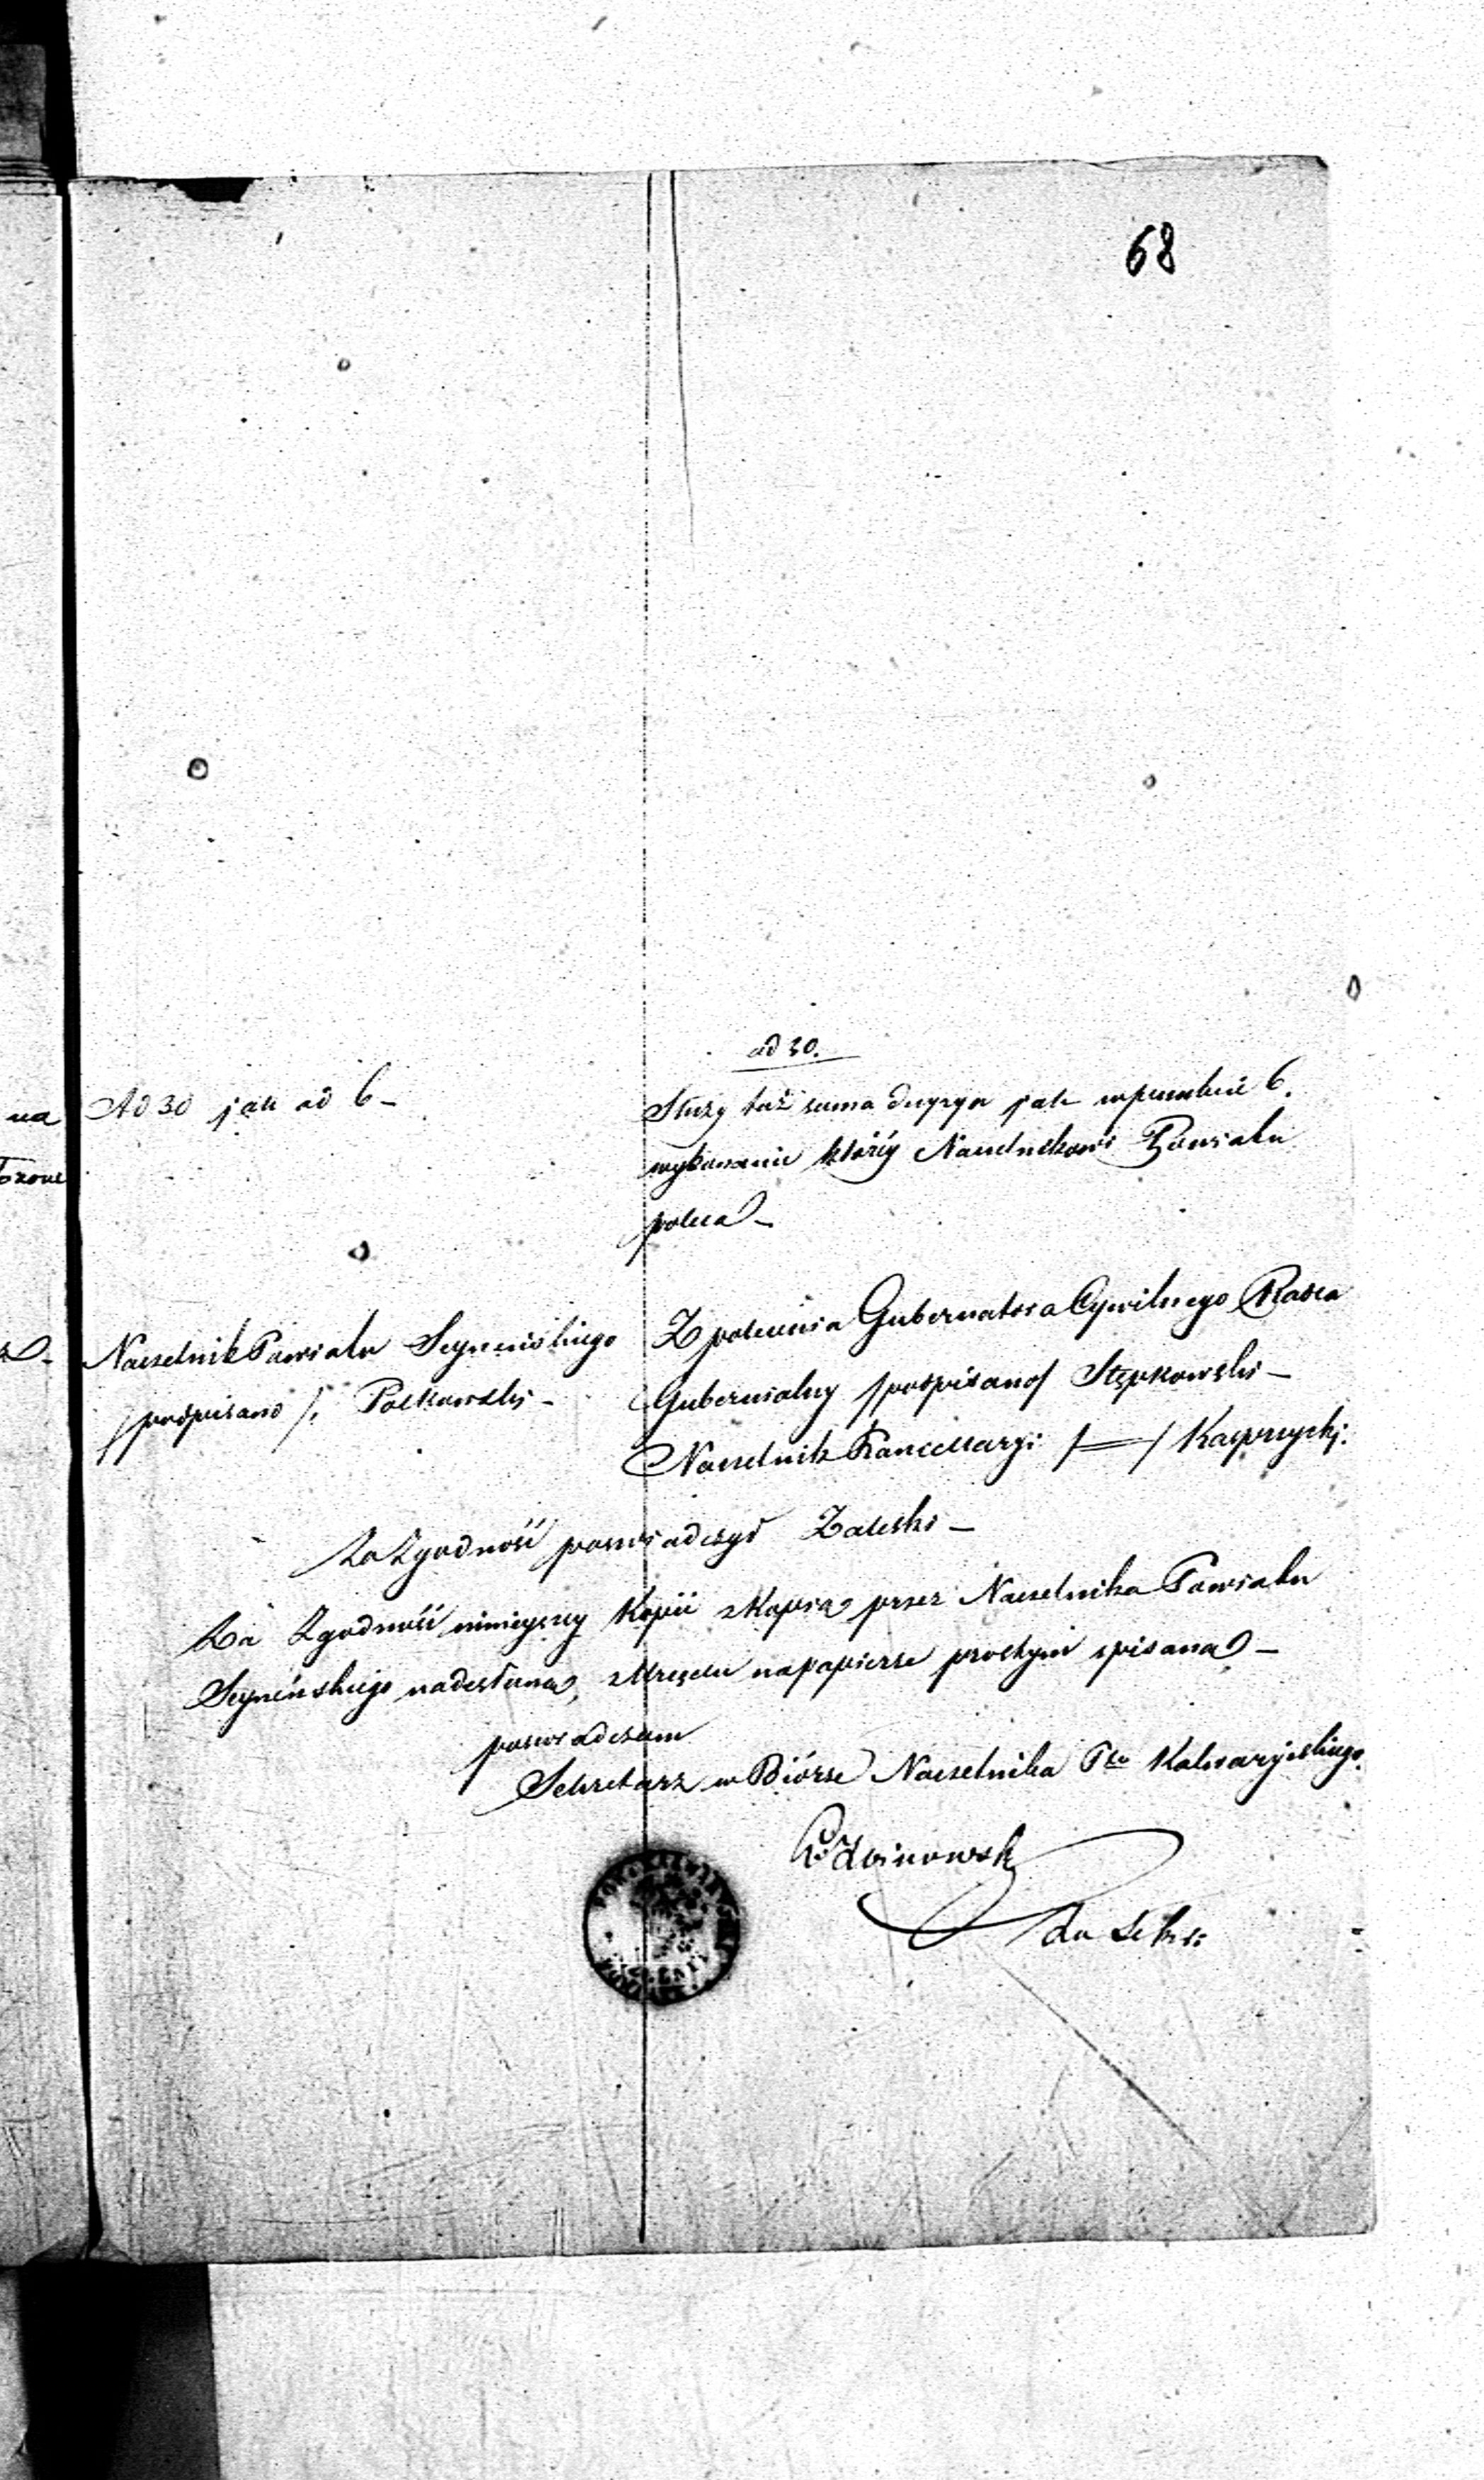 68
na
Ad 30 jak ad 6 –
ad 30.
Służy taż sama decyzya jak w punkcie 6.
wykonanie któréy Naczelnikowi Powiatu
poleca –
Naczelnik Powiatu Seyneńskiego
/podpisano/.
Z polecenia Gubernatora Cywilnego Radca
Gubernialny /podpisano/ Stępkowski –
Naczelnik Kancellaryi /=/ Kasprzycki.
Za Zgodność poswiadczył Zaleski –
Za Zgodność ninieyszey Kopii z Kopią przez Naczelnika Powiatu
Seyneńskiego nadesłaną, na papierze prostym spisaną –
poswiadczam
Sekretarz w Biórze Naczelnika Ptu Kalwaryiskiego.